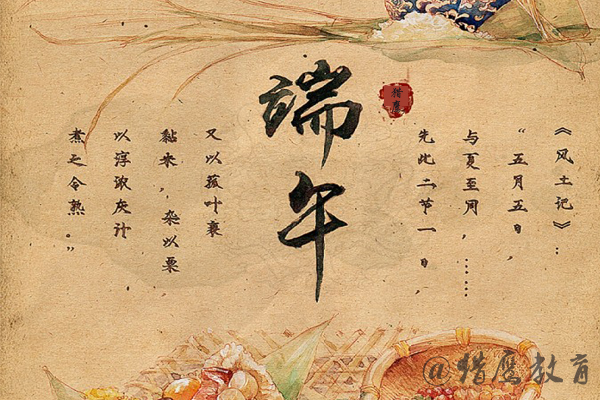 《风土记》:
“五月五日,
与夏至同,……
先此二节一日,
猎鹰
端午
又以菰叶裹
黏米,杂以粟,
以淳浓灰汁
煮之令熟。”
@猎鹰教育